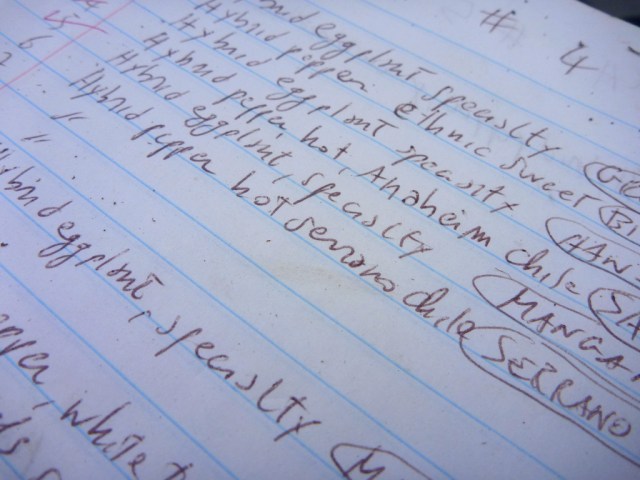 # 4
Hybrid eggplant specialty
Hybrid pepper ethnic sweet
Hybrid eggplant specialty HAN
Hybrid pepper hot, Anaheim chile
Hybrid eggplant, specialty MANGA
Hybrid pepper hot serrano chile SERRANO
" "
Hybrid eggplant, specialty
white